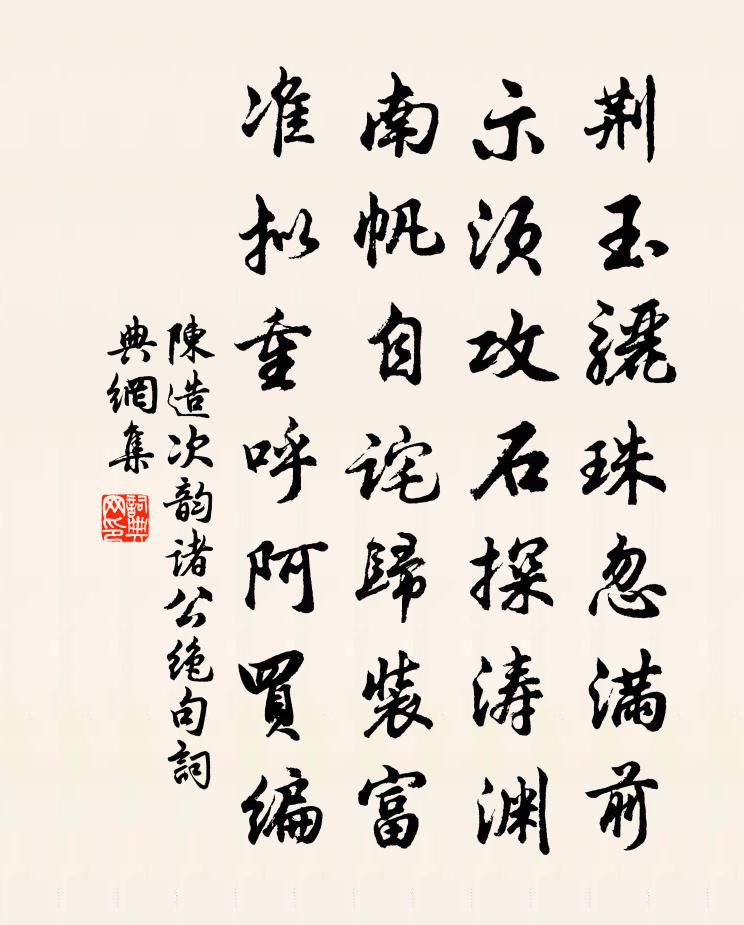 荆玉驪珠忽满前
示须攻石探涛渊
南帆自詫歸装富
准拟重呼阿買编
陳造次韵诸公绝句詞
典網集
詞典
网印